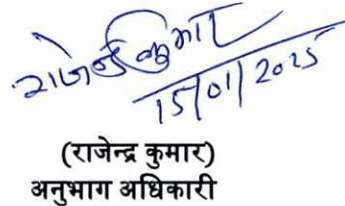 राजेन्द्र कुमार
15/01/2025
(राजेन्द्र कुमार)
अनुभाग अधिकारी